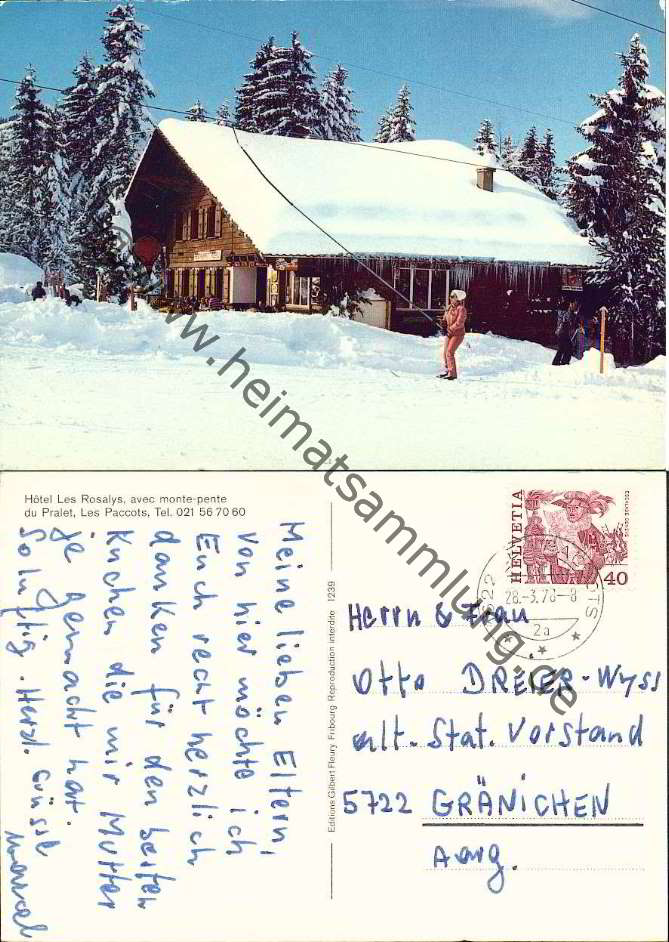 www.heimatsammlung.de
Hôtel Les Rosalys, avec monte-pente
du Pralet, Les Paccots, Tel. 021 56 70 60
Meine lieben Eltern,
von hier möchte ich
Euch recht herzlich
danken für den besten
Kuchen die mir Mutter
je gemacht hat.
Soluftig. Herzl. Grüsse
Marcel
Editions Gilbert Fleury, Fribourg Reproduction interdite 1239
HELVETIA
40
28.-3.78-8
2a
Herrn & Frau
Otto DREIER-Wyss
alt-Stat. Vorstand
5722 GRÄNICHEN
Aarg.